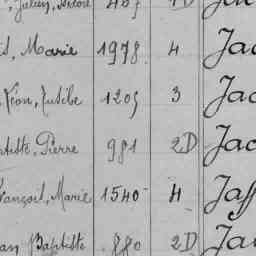 Julien, Désiré 467 1D
is, Marie 1978 4 Jac
Léon, Eusèbe 1205 3 Jac
ptiste, Pierre 981 2D Jac
rançois, Marie 1540 4 Jaff
an Baptiste 880 2D Ja